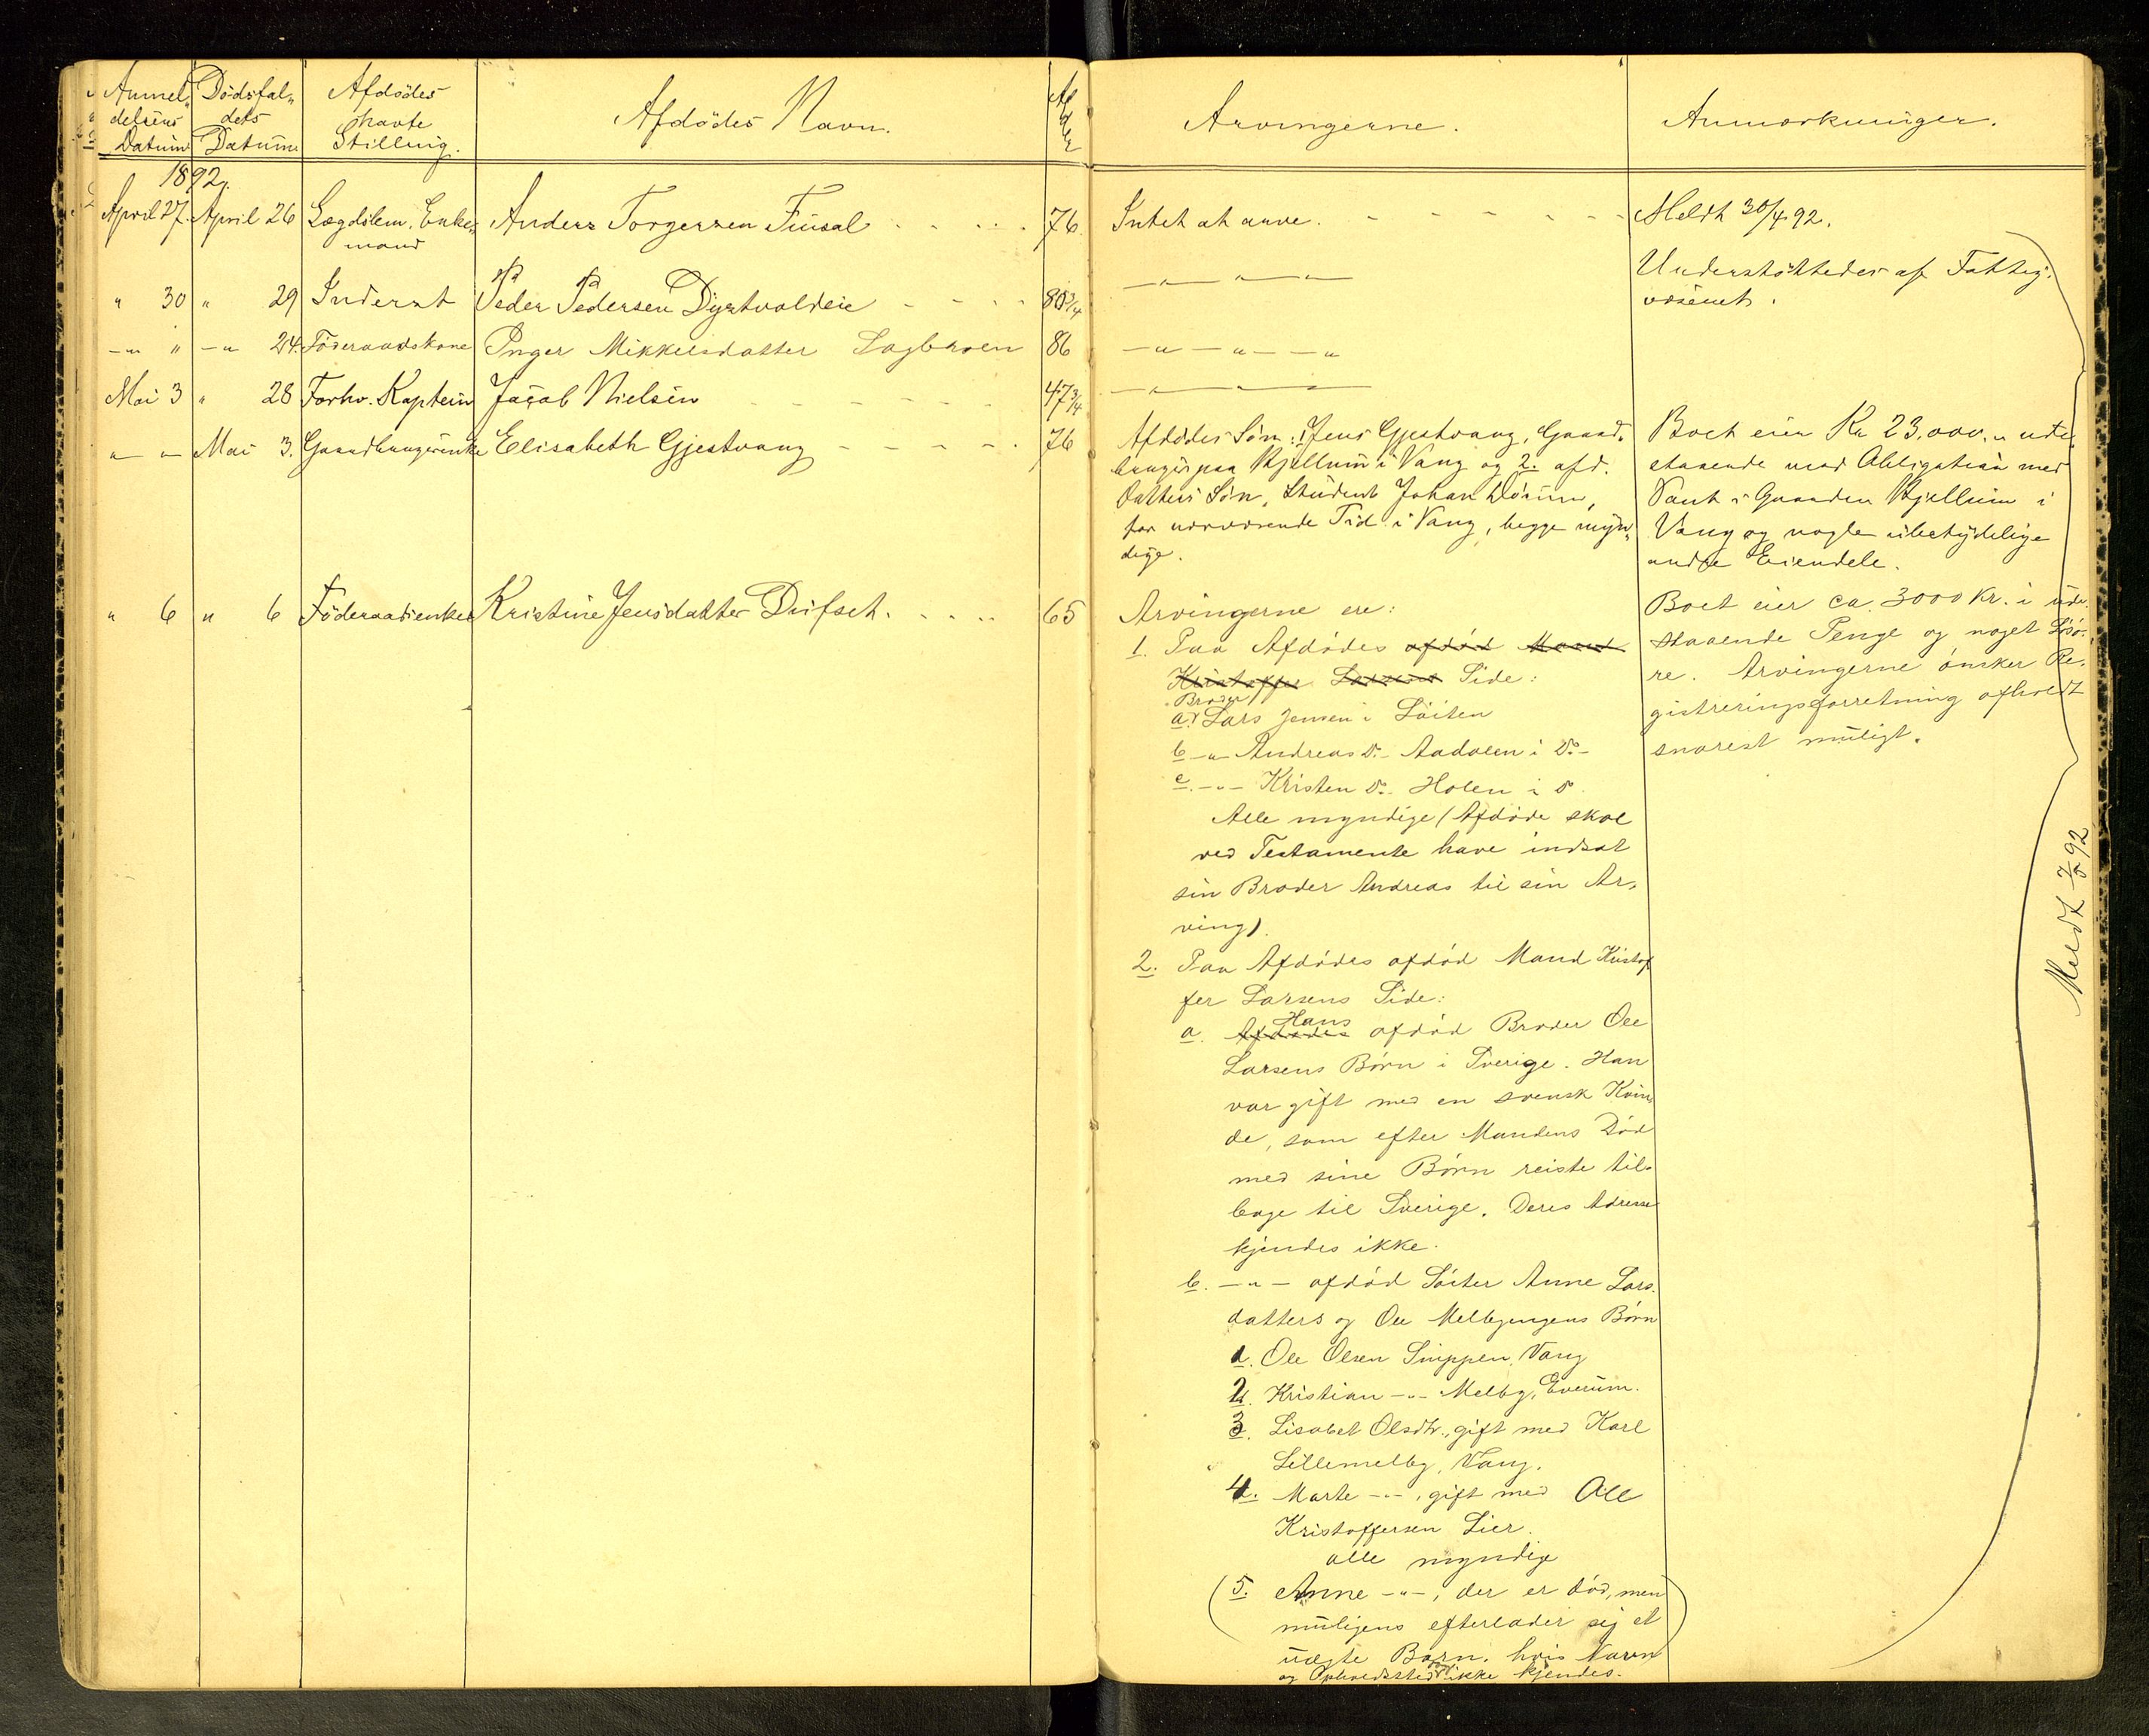 Anmel„ delsens Datum
Dödsfal„ dets Datum
Afdödes havte Stilling.
Afdödes Navn.
Alder
Arvingerne.
Anmærkninger.
1892.
April 27. April 26 Lægdslem, Enke„ mand Anders Torgersen Finsal 76. Intet at arve. Meldt 30/4 92.
" 30 " 29 Inderst Peder Pedersen Dystvoldeie 80 3/4 — " — " — " —
Understöttedes af Fattig-
væsenet.
— " " — " 24. Föderaadskone Inger Mikkelsdatter Sagbraaten 86 — " — " — — "
Mai 3 " 28 Forhv. Kaptein Jacob Nielsen 47 3/4 — " — " —
" " Mai 3. Gaardbrugerenke Elisabeth Gjestvang 76
Afdödes Sön: 1. Jens Gjestvang, Gaard„
bruger paa Kjellum i Vang og 2. afd.
Datters Sön, Student Johan Dörum,
for nærværende Tid i Vang, begge myn„
dige.
Boet eier Kr 23,000 „ ude
staaende mod Obligation med
Pant i Gaarden Kjellum i
Vang og nogle ubetydelige
andre Eiendele.
" 6 " 6 Föderaadsenke Kristine Jensdatter Dufset. 65
Arvingerne ere:
1. Paa Afdödes afdöd Mand
Kristoffer Larsens Side:
Broder
a. Lars Jensen i Löiten
b — " — Andreas Do. Aadalen i Do. —
c. — " — Kristen Do. Holen i Do.
Alle myndige (Afdöde skal
ved Testamente have indsat
sin Broder Andreas til sin Ar„
ving).
2. Paa Afdödes afdöd Mand Kristof
fer Larsens Side:
Hans
a. Afdödes afdöd Broder Ole
Larsens Börn i Sverige. Han
var gift med en svensk Kvin„
de, som efter Mandens Död
med sine Börn reiste til„
bage til Sverige. Deres Adresse
kjendes ikke.
b. — " — afdöd Söster Anne Lars„
datters og Ole Melbyengens Börn
1. Ole Olsen Snippen, Vang
2. Kristian — " — Melby, Elverum.
3. Lisabet Olsdtr., gift med Karl
Lillemelby, Vang.
4. Marte — " —, gift med Ole
Kristoffersen Lier.
alle myndige
(5. Anne — " —, der er död, men
muligens efterlader sig et
uægte Barn, hvis Navn
og Opholdssted ikke kjendes.)
Boet eier ca. 3000 Kr. i ude„
staaende Penge og noget Lösö„
re. Arvingerne önsker Re„
gistreringsforretning afholdt
snarest muligt.
Meldt 7/5 92